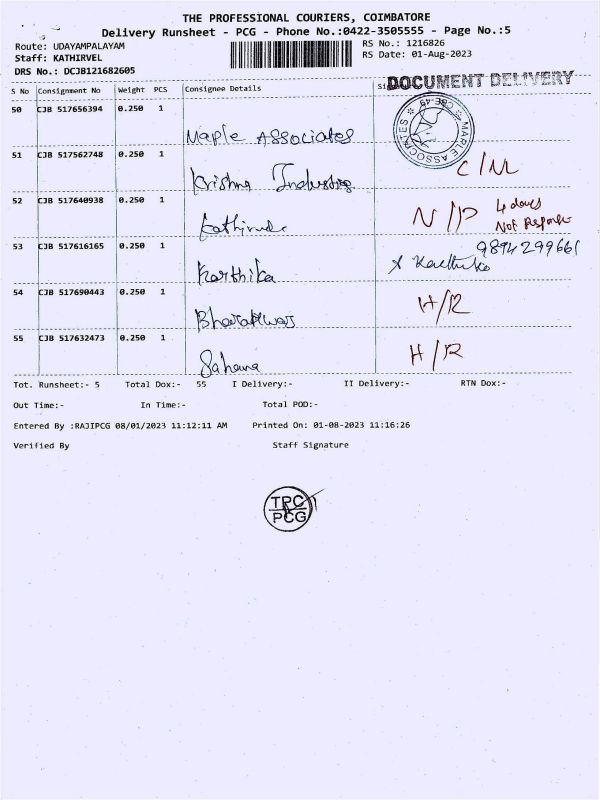 THE PROFESSIONAL COURIERS, COIMBATORE
Delivery Runsheet - PCG - Phone No.:0422-3505555 - Page No.:5
Route: UDAYAMPALAYAM RS No.: 1216826
Staff: KATHIRVEL RS Date: 01-Aug-2023
DRS No.: DCJB121682605
DOCUMENT DELIVERY
S No Consignment No Weight PCS Consignee Details
50 CJB 517656394 0.250 1 Maple Associates
CBE-49 MAPLE ASSOCIATES
51 CJB 517562748 0.250 1 Krishna Industries
52 CJB 517640938 0.250 1 N/P 4 days
Not
53 CJB 517616165 0.250 1 Karthika 9894299661
54 CJB 517690443 0.250 1 H/R
55 CJB 517632473 0.250 1 Sahana H/R
Tot. Runsheet:- 5 Total Dox:- 55 I Delivery:- II Delivery:- RTN Dox:-
Out Time:- In Time:- Total POD:-
Entered By :RAJIPCG 08/01/2023 11:12:11 AM Printed On: 01-08-2023 11:16:26
Verified By Staff Signature
TPC
PCG